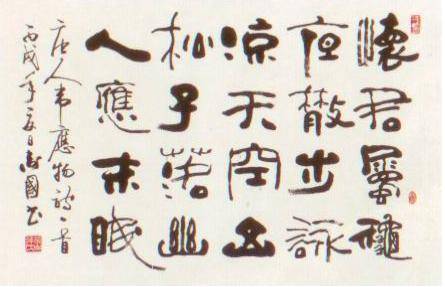 懷君屬穐
夜散步詠
涼天空山
松子落幽
人應未眠
唐人韋應物詩一首
丙戌年夏日壽國書